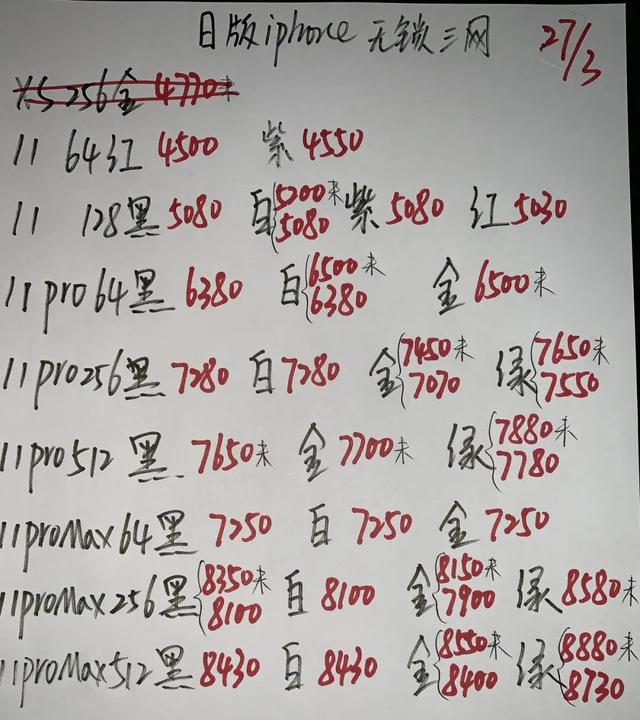 日版iphone 无锁三网 27/3
XS 256金 4770未
11 64红 4500 紫 4550
11 128黑 5080 白{5200未 5080 紫 5080 红 5030
11pro 64黑 6380 白{6500未 6380 金 6500未
11pro256黑 7280 白 7280 金{7450未 7070 绿{7650未 7550
11pro512 黑 7650未 金 7700未 绿{7880未 7780
11proMax 64黑 7250 白 7250 金 7250
11proMax 256黑{8350未 8100 白 8100 金{8150未 7900 绿 8580未
11proMax512黑 8430 白 8430 金{8550未 8400 绿{8880未 8730